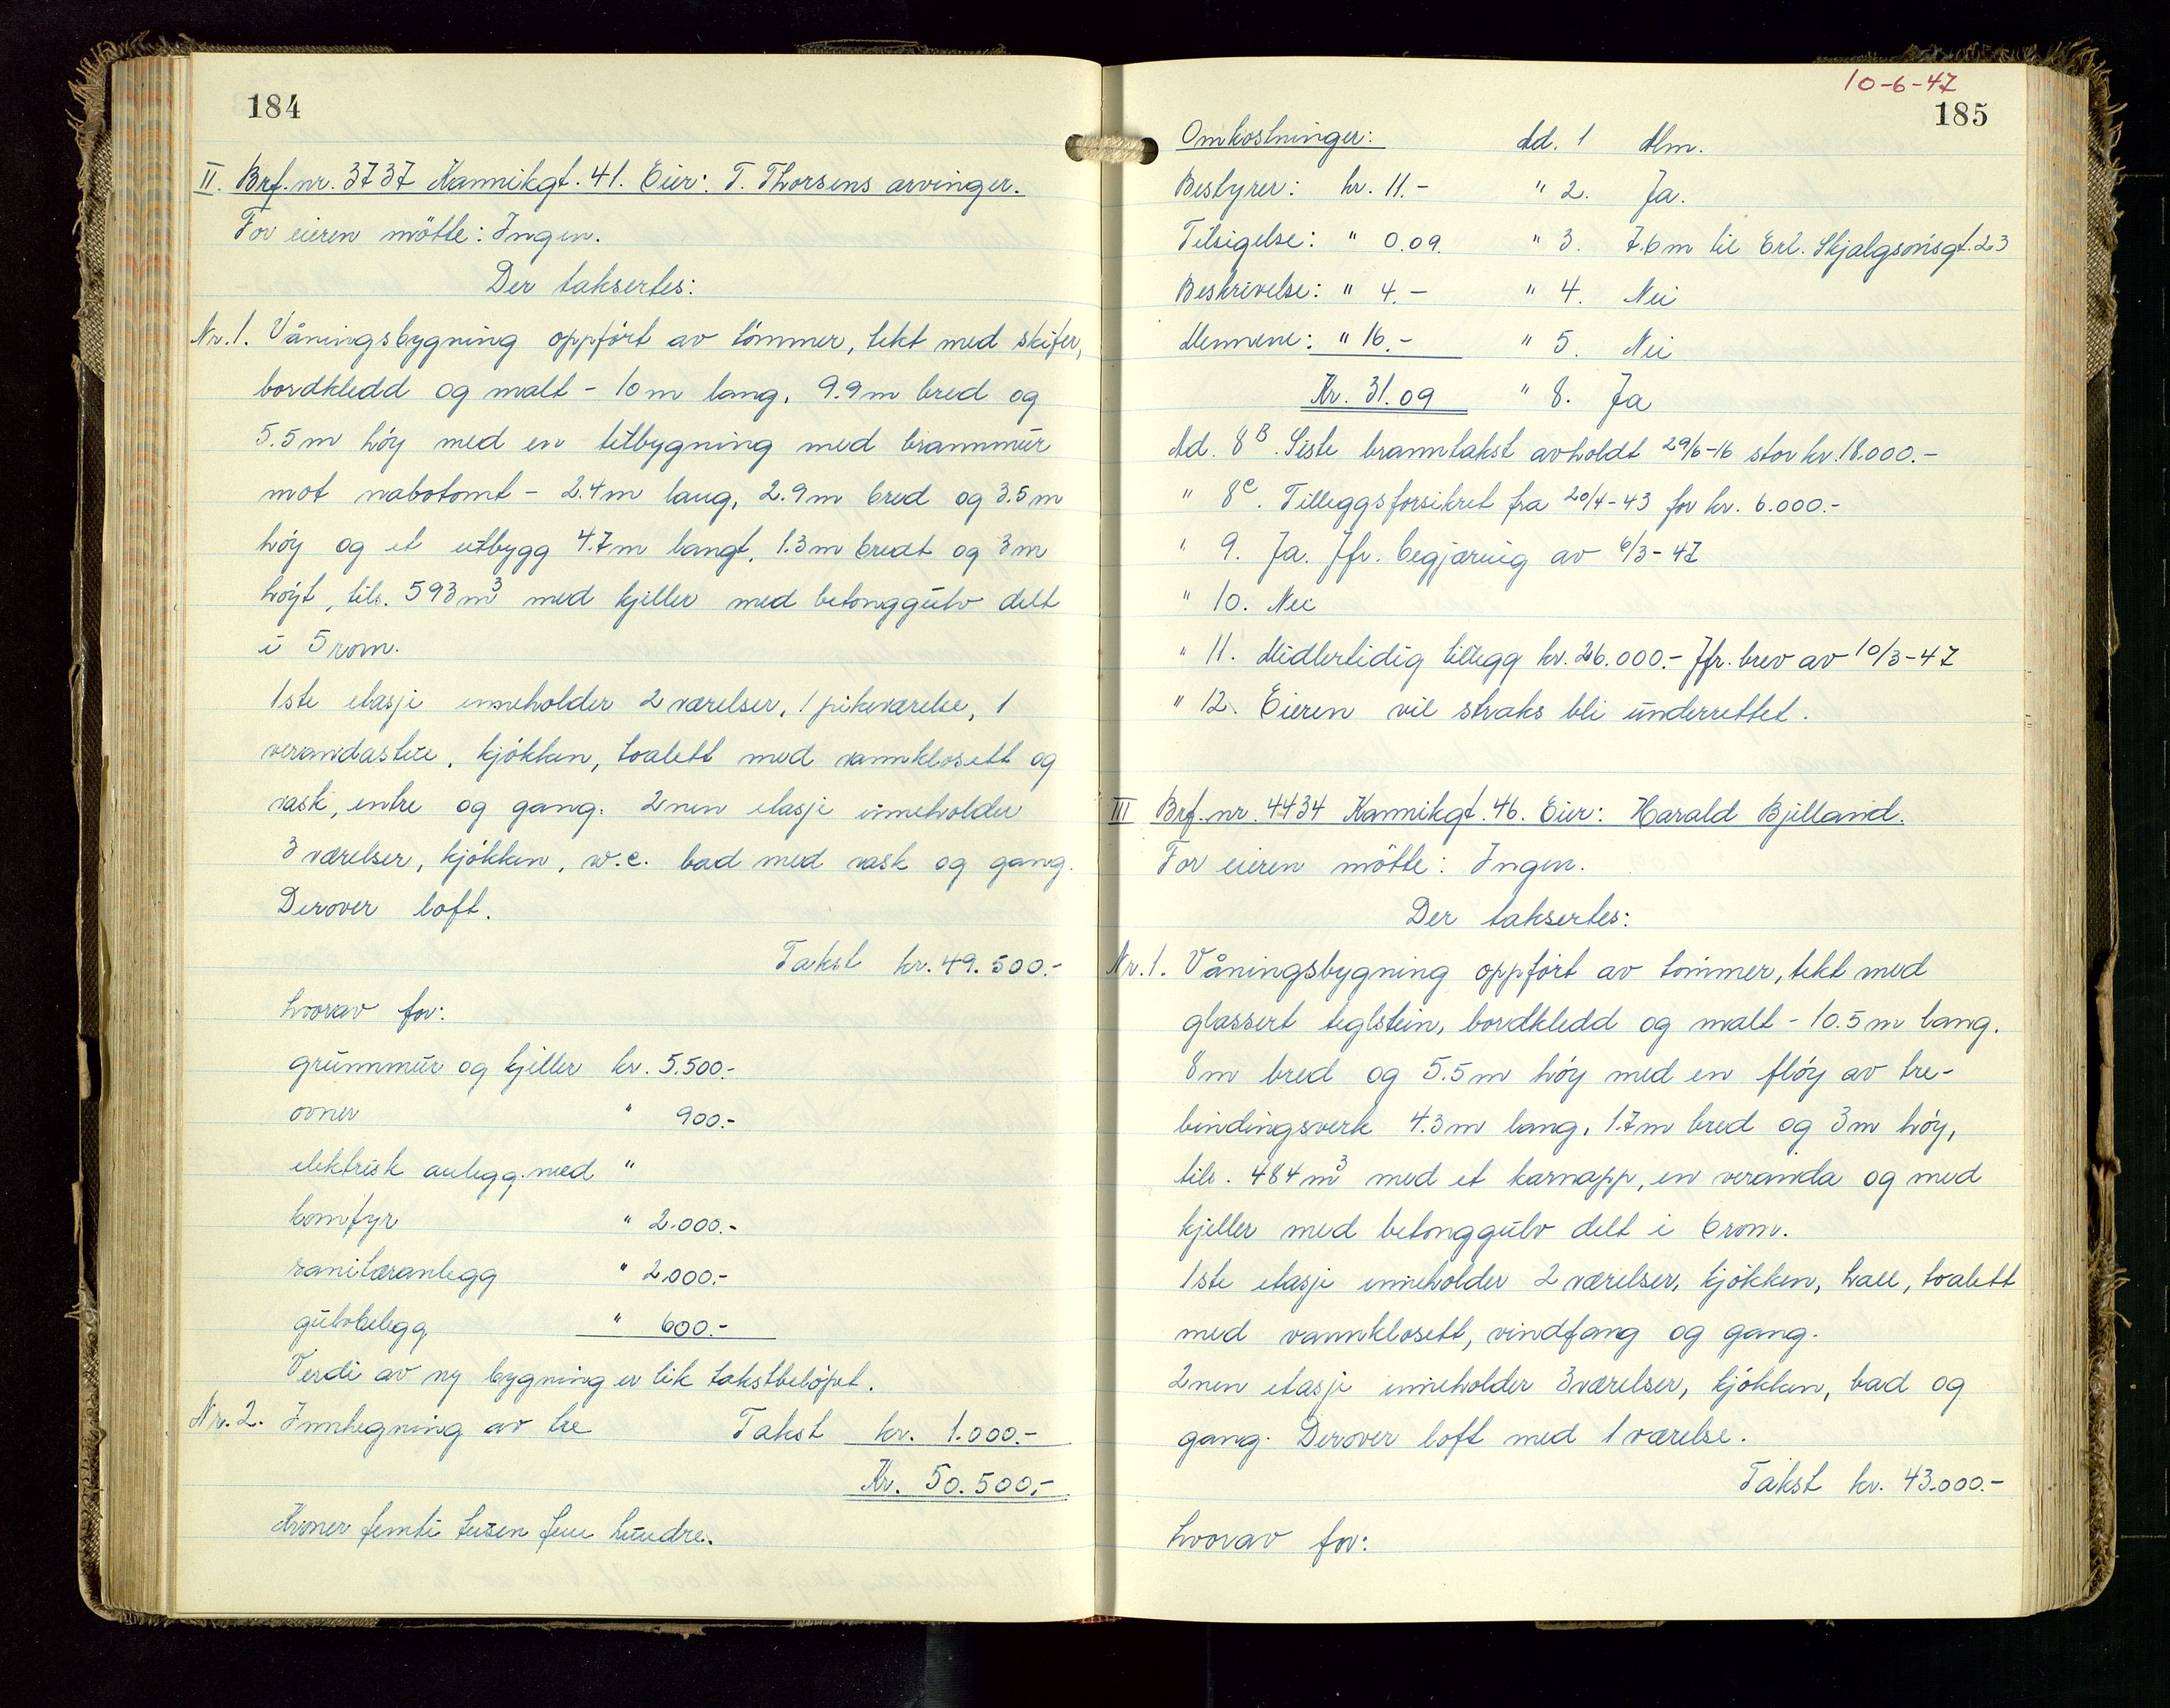 184
II. Brf.nr. 3737 Kannikgt. 41. Eier: T. Thorsens arvinger.
For eieren møtte: Ingen.
Der taksertes:
Nr. 1. Våningsbygning oppført av tømmer, tekt med skifer,
bordkledd og malt - 10 m lang, 9.9 m bred og
5.5 m høy med en tilbygning med brannmur
mot nabotomt - 2.4 m lang, 2.9 m bred og 3.5 m
høy og et utbygg 4.7 m langt, 1.3 m bredt og 3 m
høyt, tils. 593 m³ med kjeller med betonggulv delt
i 5 rom.
1ste etasje inneholder 2 værelser, 1 pikeværelse, 1
verandastue, kjøkken, toalett med vannklosett og
vask, entre og gang. 2nen etasje inneholder
3 værelser, kjøkken, w.c. bad med vask og gang.
Derover loft.
Takst kr. 49.500.-
hvorav for:
grunnmur og kjeller kr. 5.500.-
ovner " 900.-
elektrisk anlegg med "
komfyr " 2.000.-
sanitæranlegg " 2.000.-
gulvbelegg " 600.-
Verdi av ny bygning er lik takstbeløpet.
Nr. 2. Innhegning av tre Takst kr. 1.000.-
Kr. 50.500.-
Kroner femti tusen fem hundre.
10-6-47
185
Omkostninger: Ad. 1 Alm.
Bestyrer: kr. 11.- " 2. Ja.
Tilsigelse: " 0.09. " 3. 7.6 m til Erl. Skjalgsønsgt. 23
Beskrivelse: " 4.- " 4. Nei
Mennene: " 16.- " 5. Nei
Kr. 31.09 " 8. Ja
Ad. 8B. Siste branntakst avholdt 29/6-16 stor kr. 18.000.-
" 8c. Tilleggsforsikret fra 20/4-43 for kr. 6.000.-
" 9. Ja. Jfr. begjæring av 6/3-47
" 10. Nei
" 11. Midlertidig tillegg kr. 26.000.- Jfr. brev av 10/3-47
" 12. Eieren vil straks bli underrettet.
III Brf.nr. 4434 Kannikgt. 46. Eier: Harald Bjelland.
For eieren møtte: Ingen.
Der taksertes:
Nr. 1. Våningsbygning oppført av tømmer, tekt med
glassert teglstein, bordkledd og malt - 10.5 m lang,
8 m bred og 5.5 m høy med en fløy av tre-
bindingsverk 4.3 m lang, 1.7 m bred og 3 m høy,
tils. 484 m³ med et karnapp, en veranda og med
kjeller med betonggulv delt i 6 rom.
1ste etasje inneholder 2 værelser, kjøkken, hall, toalett
med vannklosett, vindfang og gang.
2nen etasje inneholder 3 værelser, kjøkken, bad og
gang. Derover loft med 1 værelse.
Takst kr. 43.000.-
hvorav for: